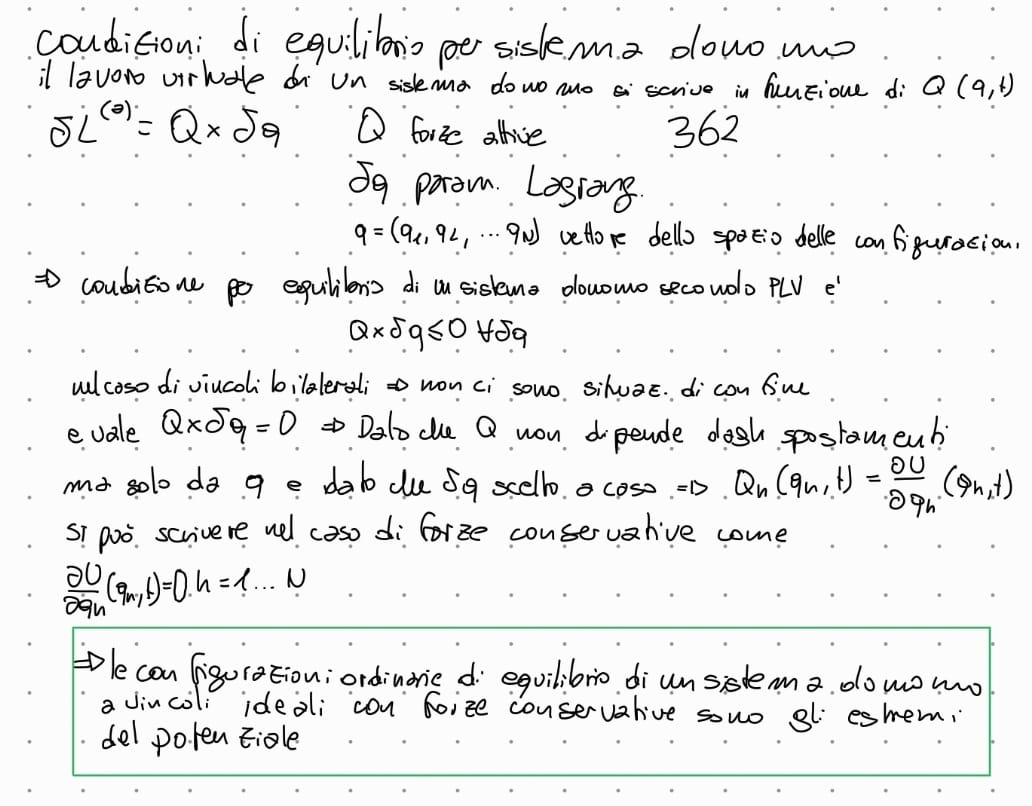 condizioni di equilibrio per sistema olonomo
il lavoro virtuale di un sistema olonomo si scrive in funzione di Q (q,t)
δL^(a) = Q × δq Q forze attive 362
δq param. Lagrang.
q = (q1, q2, ... qN) vettore dello spazio delle configurazioni
⇒ condizione per equilibrio di un sistema olonomo secondo PLV e'
Q × δq ≤ 0 ∀δq
nel caso di vincoli bilaterali ⇒ non ci sono situaz. di confine
e vale Q × δq = 0 ⇒ Dato che Q non dipende dagli spostamenti
ma solo da q e dato che δq scelto a caso ⇒ Qh (qh, t) = ∂U/∂qh (qh, t)
si può scrivere nel caso di forze conservative come
∂U/∂qh (qh, t) = 0 h = 1 ... N
⇒ le configurazioni ordinarie di equilibrio di un sistema olonomo
a vincoli ideali con forze conservative sono gli estremi
del potenziale